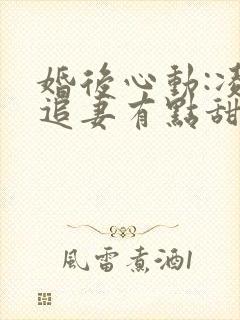 婚後心動:凌
追妻有點甜
風雷煮酒1